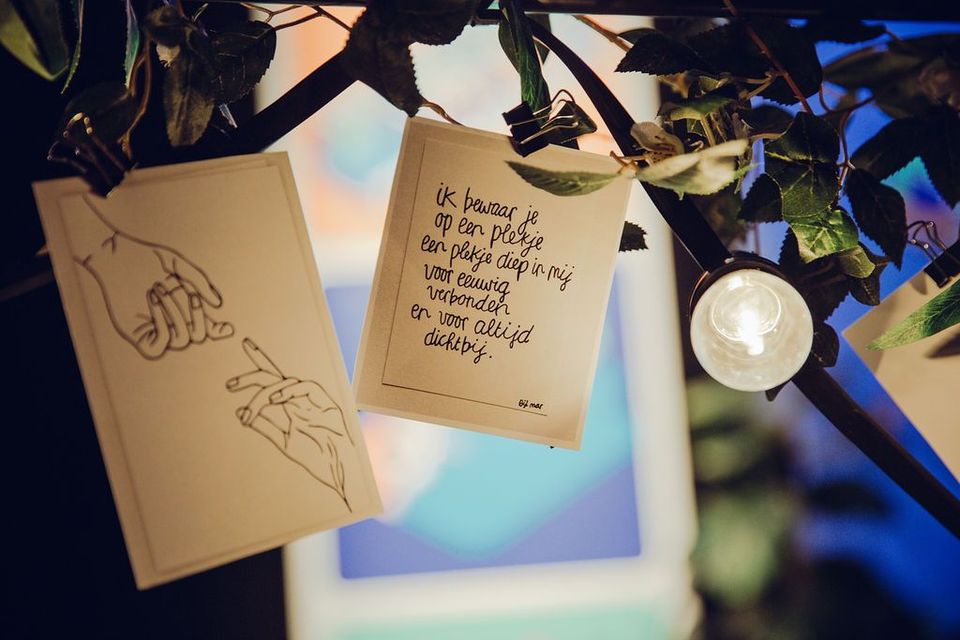 ik bewaar je
op een plekje
een plekje diep in mij
voor eeuwig
verbonden
en voor altijd
dichtbij.
Bij mar